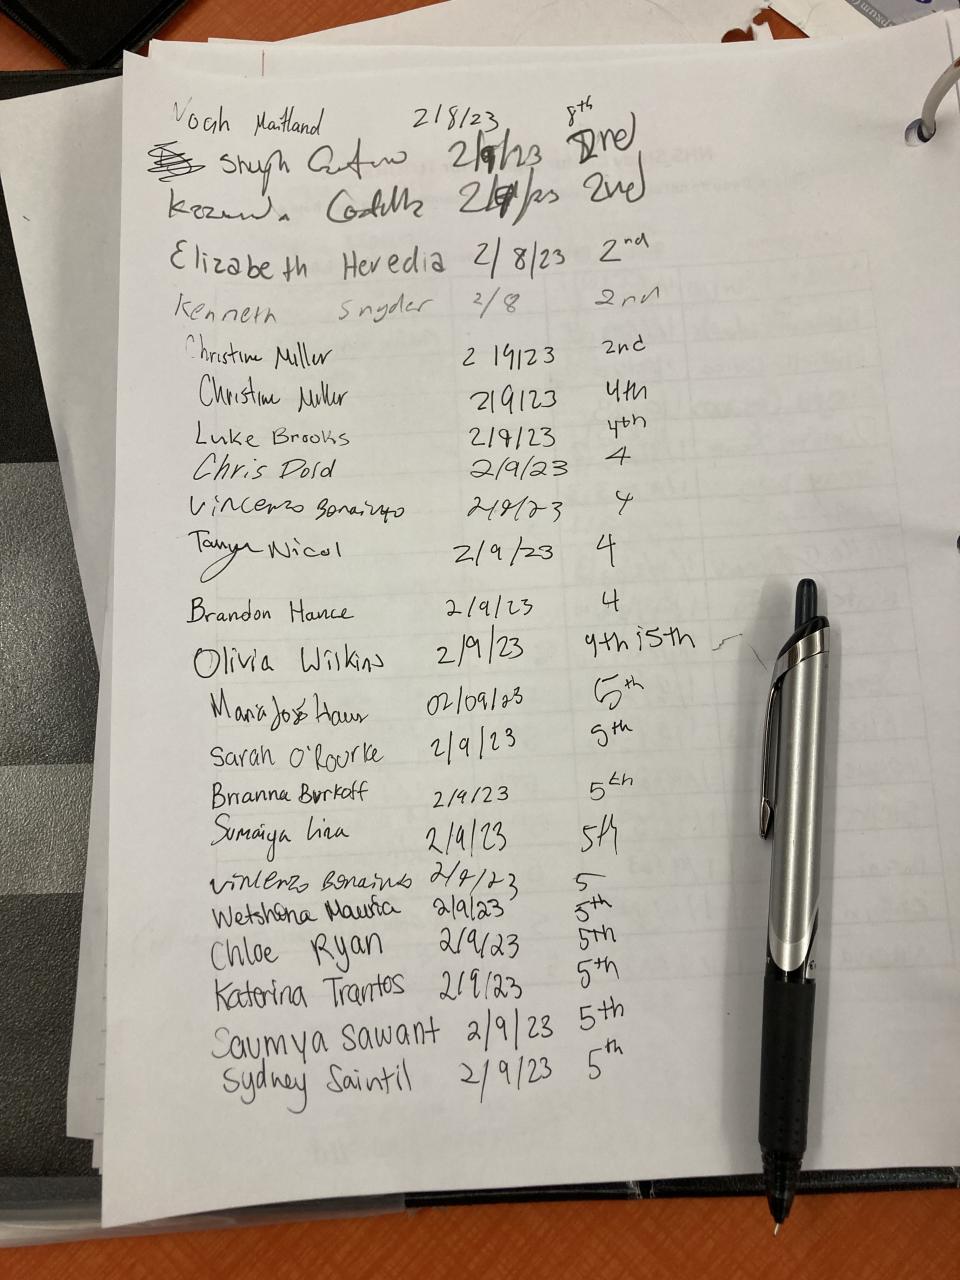 Noah Maitland 2/8/23 8th
2/9/23 2nd
2/9/23 2nd
Elizabeth Heredia 2/8/23 2nd
Kenneth Snyder 2/8 2nd
Christine Miller 2/9/23 2nd
Christine Miller 2/9/23 4th
Luke Brooks 2/9/23 4th
Chris Dold 2/9/23 4
Vincenzo 2/9/23 4
Tanya Nicol 2/9/23 4
Brandon Hance 2/9/23 4
Olivia Wilkins 2/9/23 4th i5th
Maria José 02/09/23 5th
Sarah O'Rourke 2/9/23 5th
Brianna Burkoff 2/9/23 5th
Sumaiya Lina 2/9/23 5th
Vincenzo 2/9/23 5
2/9/23 5th
Chloe Ryan 2/9/23 5th
Katerina Trantos 2/9/23 5th
Saumya Sawant 2/9/23 5th
Sydney Saintil 2/9/23 5th